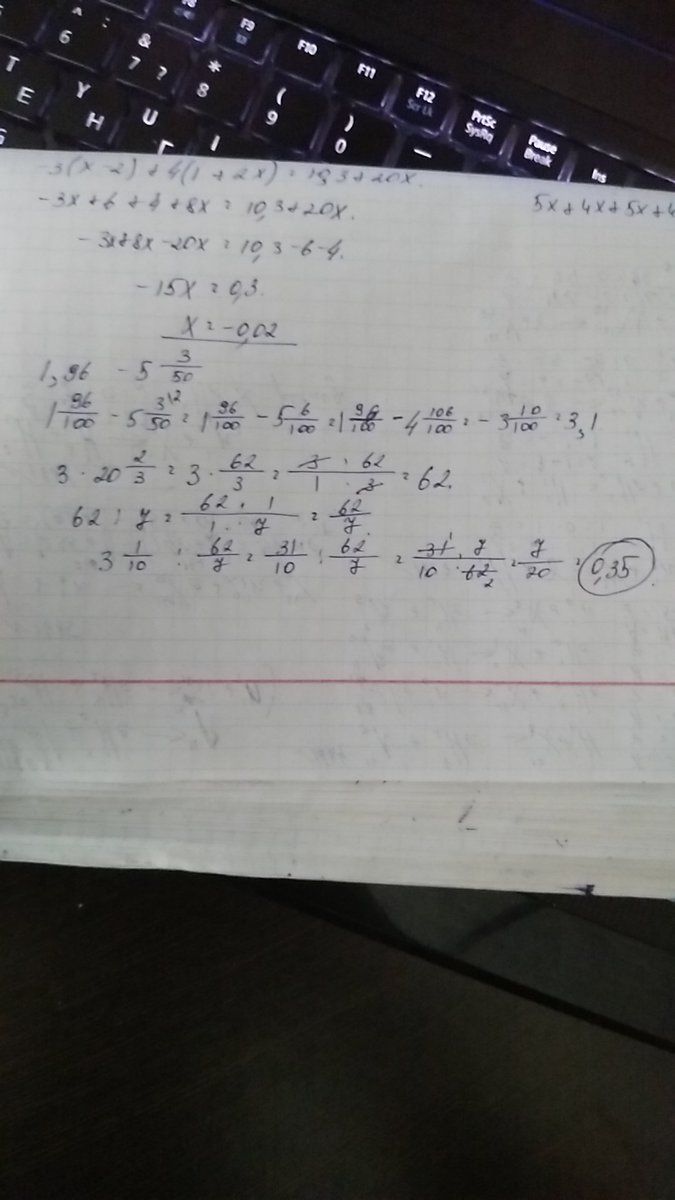 6
&
7 ?
*
8
(
9
)
0
F9
F10
F11
F12
Scr Lk
PrtSc
SysRq
Pause
Break
Ins
T
E
Y
H
U
Г
-3(x-2)+4(1+2x)=10,3+20x.
-3x+6+4+8x=10,3+20x.
5x+4x+5x+4
-3x+8x-20x=10,3-6-4.
-15x=0,3.
x=-0,02
1,96 - 5 3/50
1 96/100 - 5 3\2/50 = 1 96/100 - 5 6/100 = 1 96/100 - 4 106/100 = -3 10/100 = 3,1
3 · 20 2/3 = 3 · 62/3 = 3 · 62/1 · 3 = 62.
62 : 7 = 62 · 1/1 · 7 = 62/7.
3 1/10 : 62/7 = 31/10 : 62/7 = 31 · 7/10 · 62 = 7/20 = 0,35.